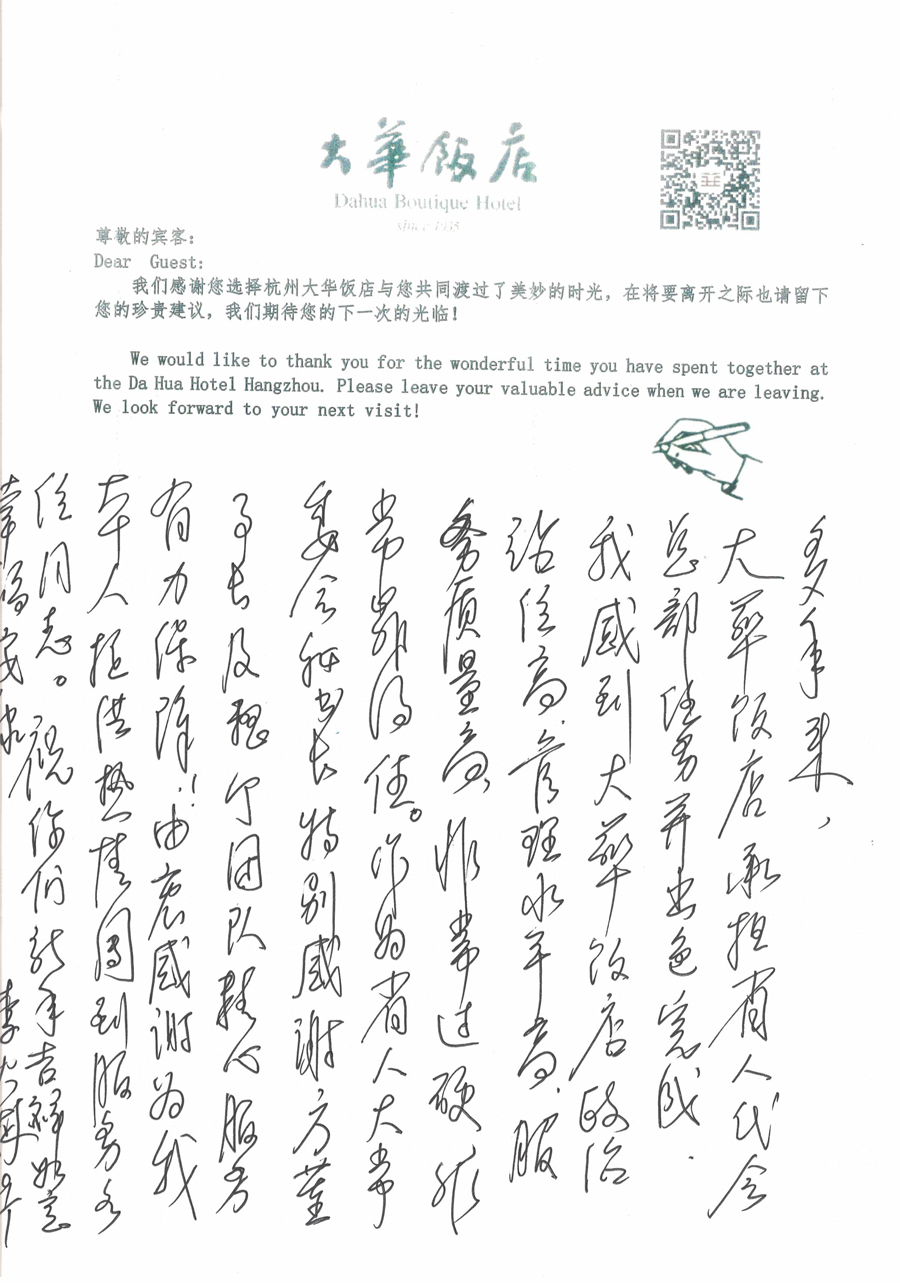 大華飯店
Dahua Boutique Hotel
since 1935
尊敬的宾客：
Dear Guest:
我们感谢您选择杭州大华饭店与您共同渡过了美妙的时光，在将要离开之际也请留下
您的珍贵建议，我们期待您的下一次的光临！
We would like to thank you for the wonderful time you have spent together at
the Da Hua Hotel Hangzhou. Please leave your valuable advice when we are leaving.
We look forward to your next visit!
多年来，
大华饭店承担省人代会
总部任务并出色完成.
我感到大华饭店政治
站位高、管理水平高、服
务质量高，非常过硬，非
常
作为省人大常
委会秘书长特别感谢方董
事长及整个团队精心服务
有力保障！由衷感谢为我
本人提供热情周到服务各
位同志。祝你们新年吉祥如意